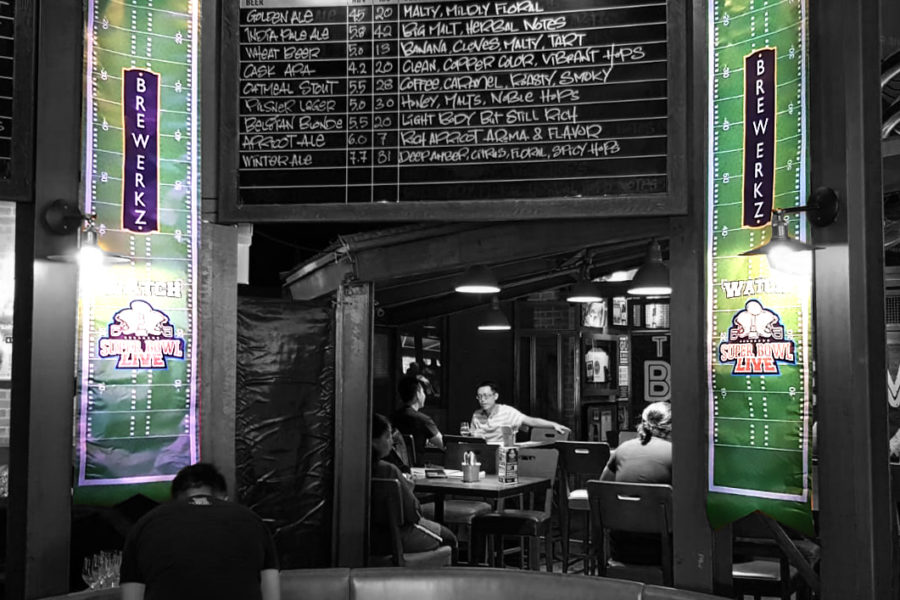 BEER
GOLDEN ALE 4.5 20 MALTY, MILDLY FLORAL
INDIA PALE ALE 5.8 42 BIG MALT, HERBAL NOTES
WHEAT BEER 5.0 13 BANANA, CLOVES, MALTY, TART
CASK APA 4.2 20 CLEAN, COPPER COLOR, VIBRANT HOPS
OATMEAL STOUT 5.5 28 COFFEE, CARAMEL, ROASTY, SMOKY
PILSNER LAGER 5.0 30 HONEY, MALTS, NOBLE HOPS
BELGIAN BLONDE 5.5 20 LIGHT BODY BUT STILL RICH
APRICOT ALE 6.0 7 RICH APRICOT AROMA & FLAVOR
WINTER ALE 7.7 81 DEEP AMBER CITRUS, FLORAL, SPICY HOPS
BREWERKZ
WATCH
SUPER BOWL
LIVE
BREWERKZ
WATCH
SUPER BOWL
LIVE
T
B